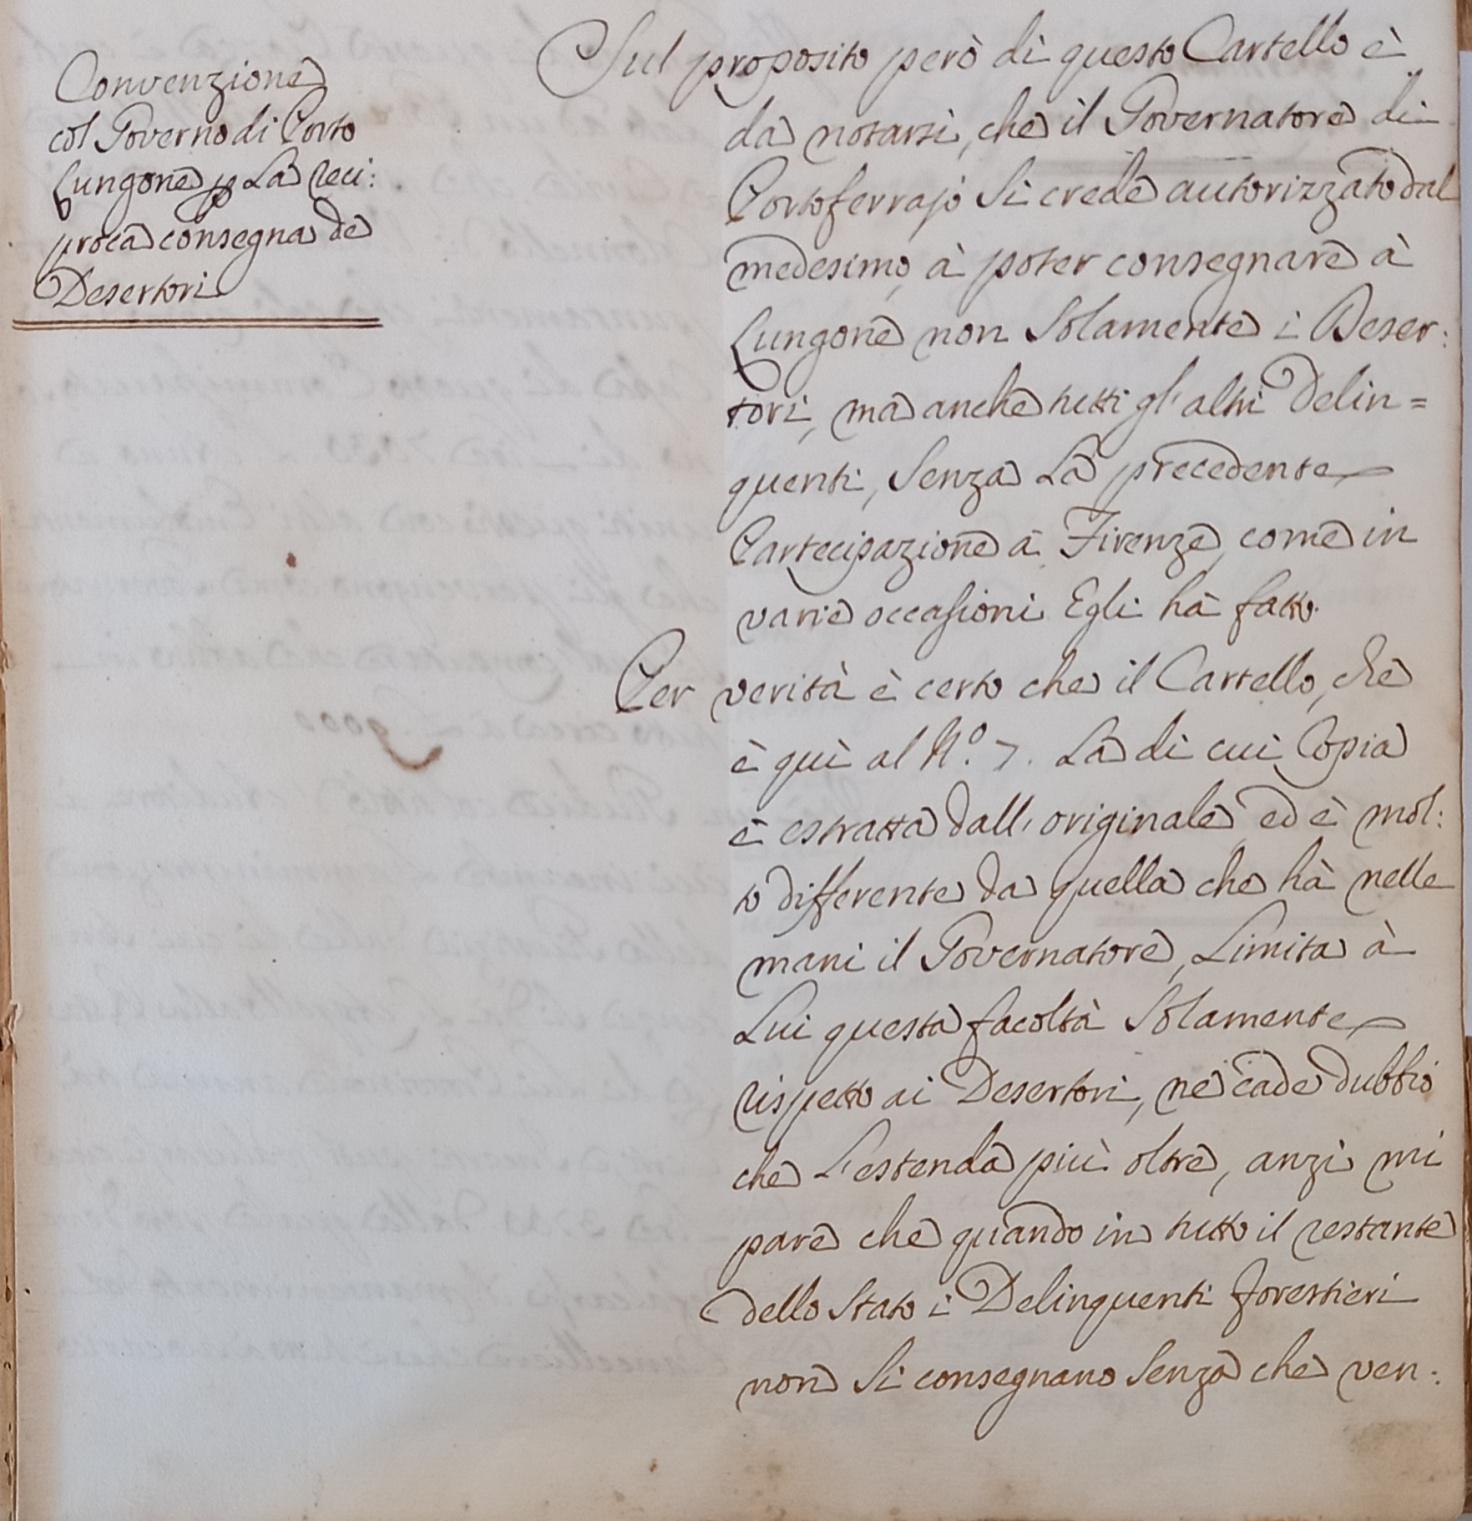 Convenzione
col Governo di Porto
Lungone p La reci:
proca consegna de
Desertori
Sul proposito però di questo Cartello è
da notarsi, che il Governatore di
Portoferrajo si crede autorizzato dal
medesimo, à poter consegnare à
Lungone non solamente i Deser:
tori, ma anche tutti gl'altri Delin=
quenti, senza La precedente
Partecipazione a Firenze, come in
varie occasioni Egli hà fatto.
Per verità è certo che il Cartello, che
è qui al N.º 7. La di cui Copia
è estratta dall'originale, ed è mol:
to differente da quella che hà nelle
mani il Governatore, Limita à
Lui questa facoltà solamente
rispetto ai Desertori, ne cade dubbio
che L'estenda più oltre, anzi mi
pare che quando in tutto il restante
dello Stato i Delinquenti forestieri
non si consegnano senza che ven: